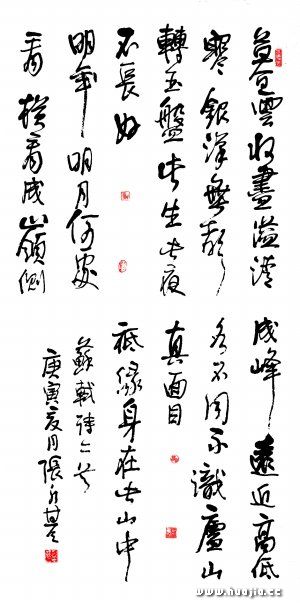 暮雲收盡溢清
寒銀漢無聲
轉玉盤此生此夜
不長好
明年明月何處
看橫看成嶺側
成峰遠近高低
各不同不識廬山
真面目
祗緣身在此山中
蘇軾詩二首
庚寅夏月張
www.huajia.cc